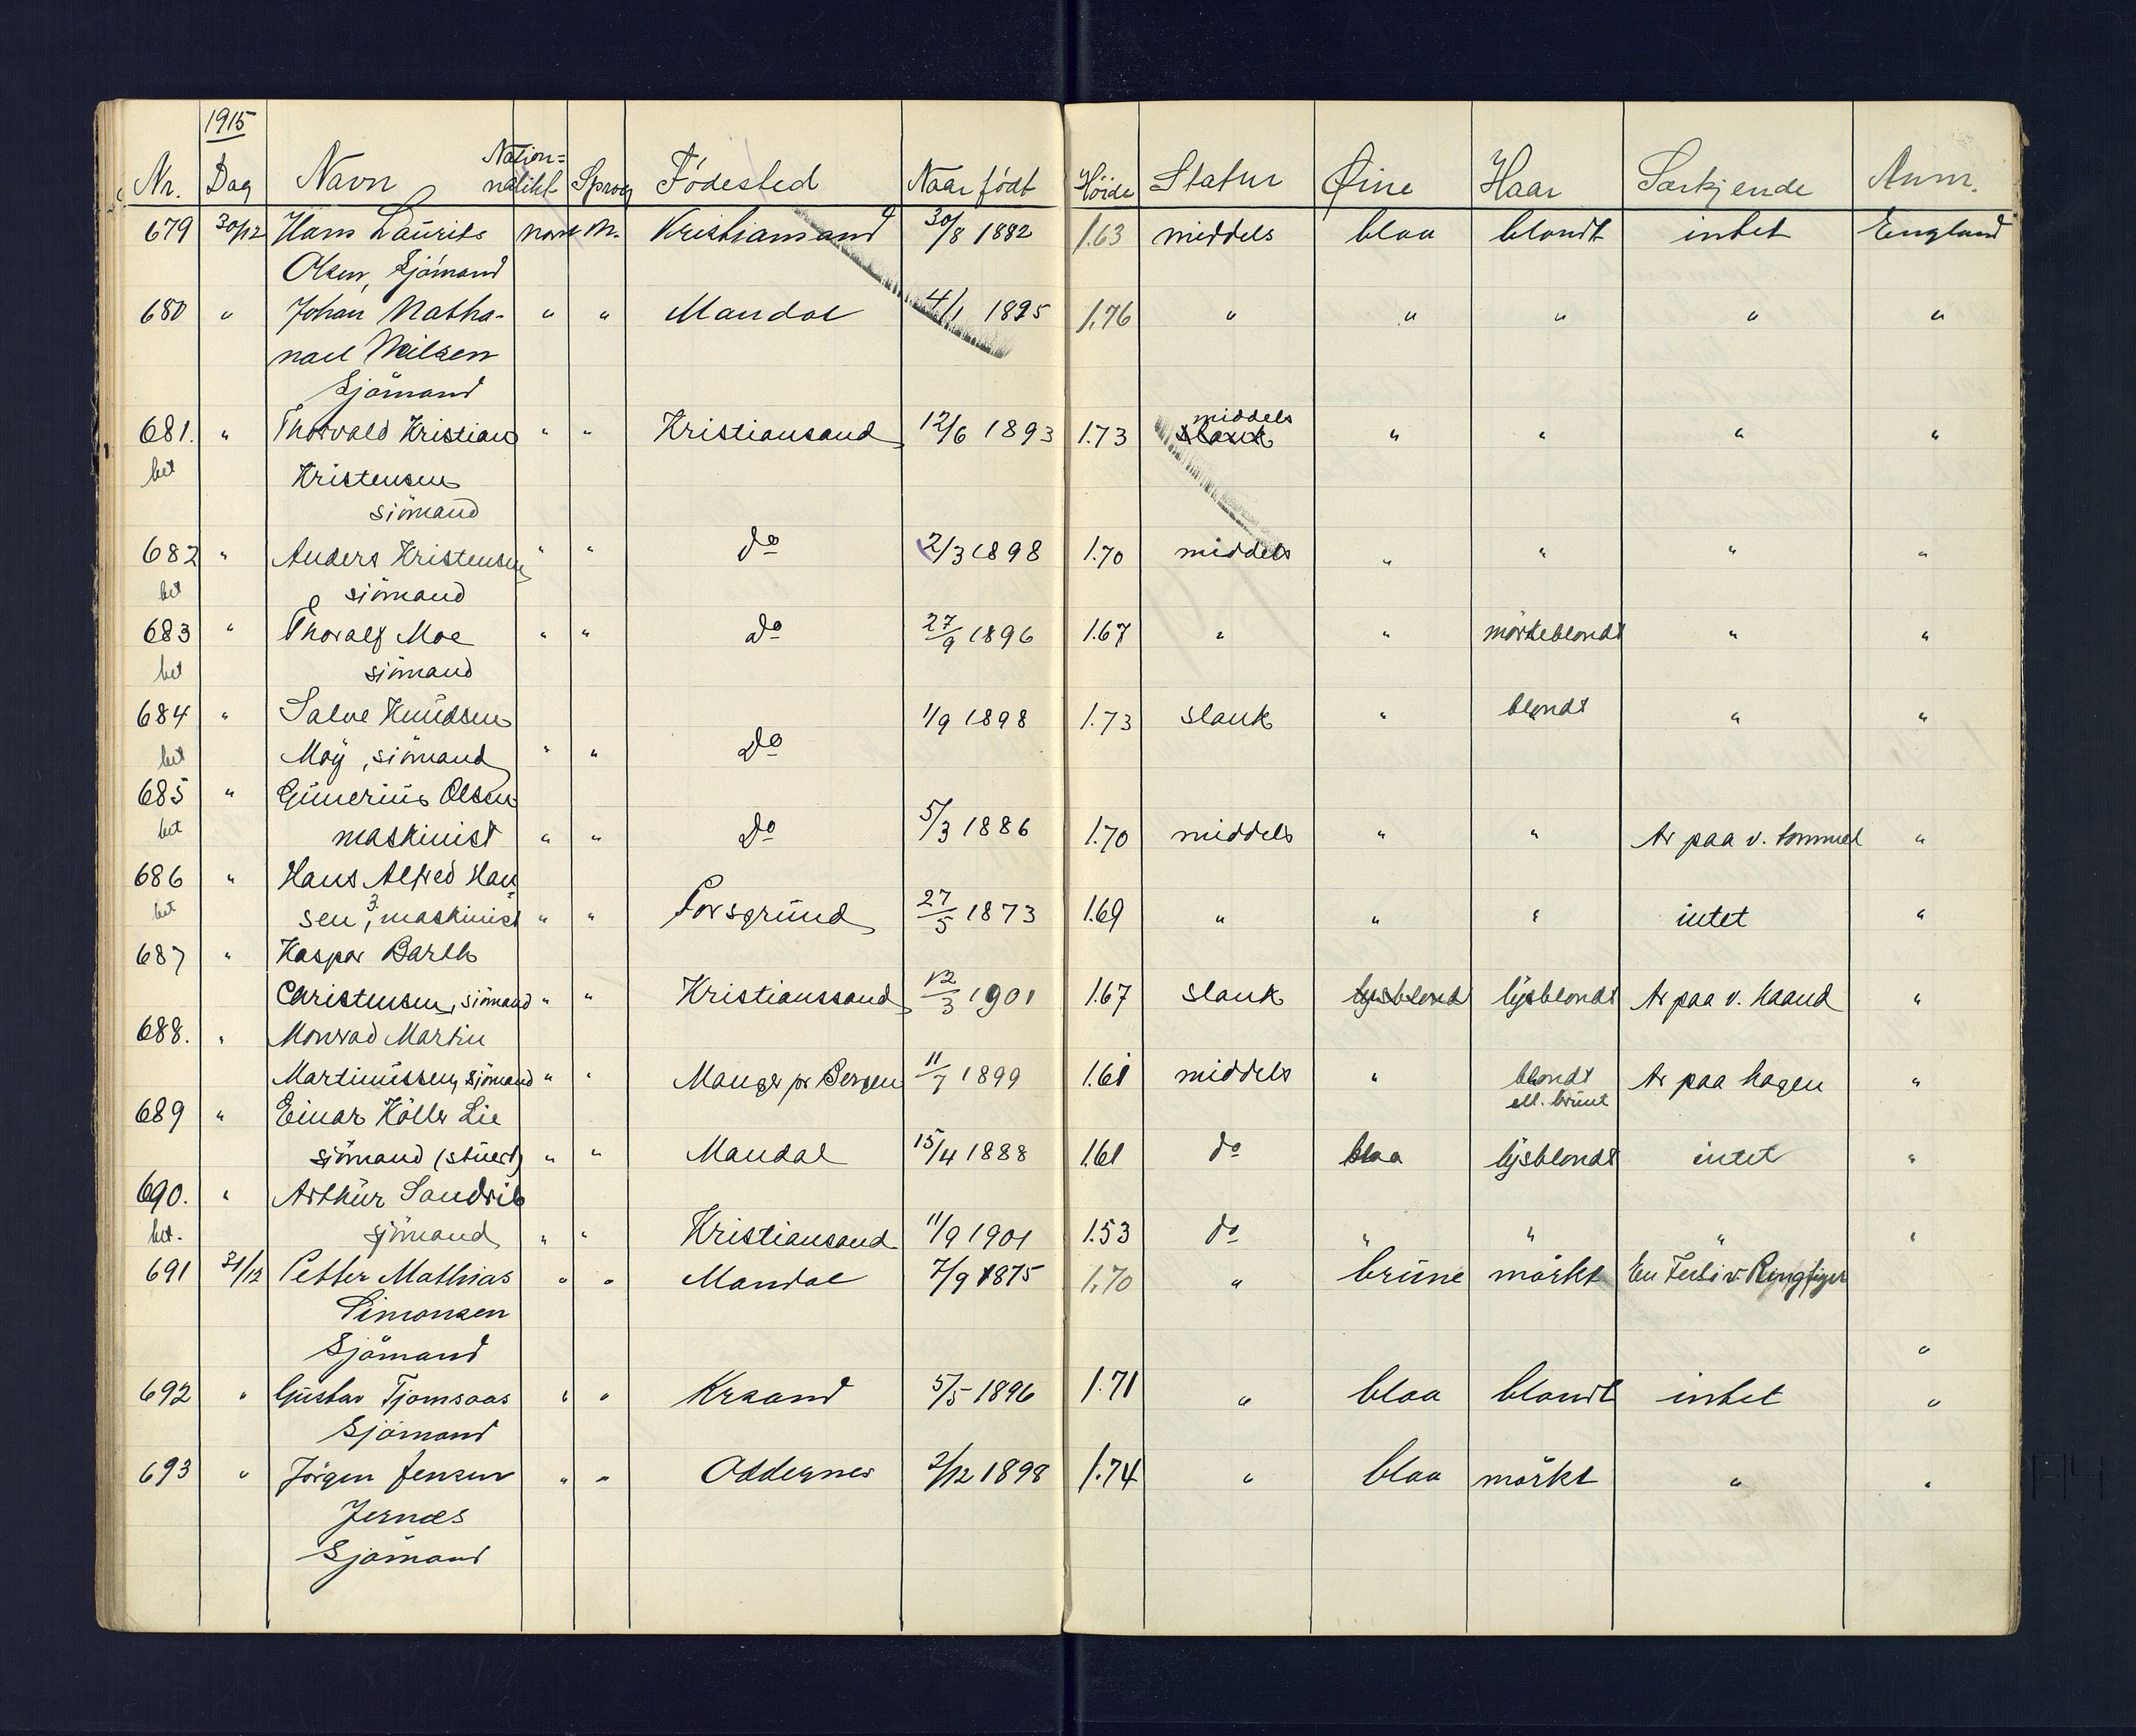 1915
Nr. Dag Navn Nation= nalitet Sprog Födested Naar födt Höide Statur Øine Haar Særkjende Anm.
679 30/12 Hans Laurits norsk N. Kristiansand 30/8 1882 1.63 middels blaa blondt intet England
Olsen, Sjömand
680 " Johan Natha- " " Mandal 4/1 1895 1.76 " " " " "
nael Nilsen
Sjömand
681. " Thorvald Kristian " " Kristiansand 12/6 1893 1.73 middels slank " " " "
bet Kristensen
sjömand
682 " Anders Kristensen " " do 2/3 1898 1.70 middels " " " "
bet sjömand
683 " Thoralf Moe " " do 27/9 1896 1.67 " " mörkeblondt " "
bet sjömand
684 " Salve Knudsen 1/9 1898 1.73 slank " blondt " "
bet Moy, sjömand " " do
685 " Gunerius Olsen
bet maskinist " " do 5/3 1886 1.70 middels " " Ar paa v. tommel "
686 " Hans Alfred Han-
bet sen, 3. maskinist " " Porsgrund 27/5 1873 1.69 " " " intet "
687 " Kaspar Barth
Christensen, sjömand " " Kristianssand 12/3 1901 1.67 slank lysblond lysblondt Ar paa v. haand "
688. " Monrad Martin
Martinussen, sjömand " " Manger pr Bergen 11/7 1899 1.61 middels " blondt Ar paa hagen "
ell. brunt
689 " Einar Köller Lie
sjömand (stuert) " " Mandal 15/4 1888 1.61 do blaa lysblondt intet "
690. " Arthur Sandvik
bet. sjömand " " Kristiansand 11/9 1901 1.53 do " " " "
691 31/12 Petter Mathias " " Mandal 7/9 1875 1.70 " brune mörkt En v. Ringfiger
Simonsen
Sjömand "
692 " Gustav Tjomsaas " " Krsand 5/5 1896 1.71 " blaa blondt intet "
Sjömand
693 " Jörgen Jensen " " Oddernes 2/12 1898 1.74 " blaa mörkt " "
Jernæs
Sjömand